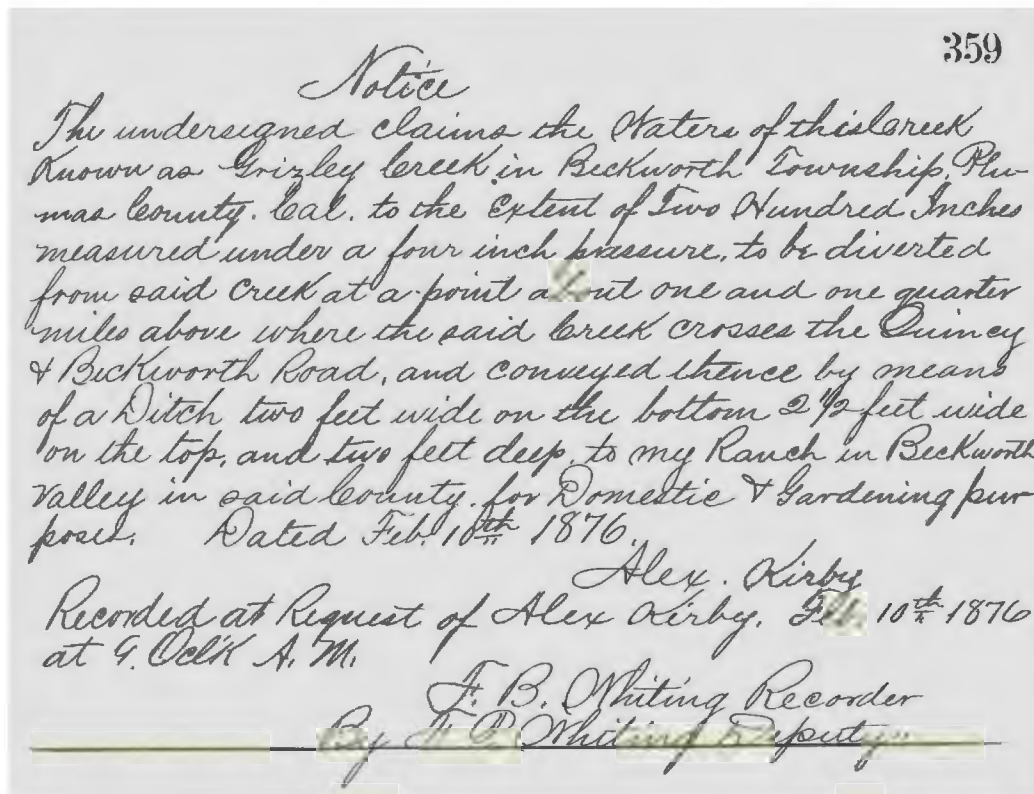 359
Notice
The undersigned claims the Waters of this Creek
Known as Grizley Creek in Beckworth Township, Plu-
mas County. Cal. to the Extent of Two Hundred Inches
measured under a four inch pressure, to be diverted
from said Creek at a point about one and one quarter
miles above where the said Creek crosses the Quincy
& Beckworth Road, and conveyed thence by means
of a Ditch two feet wide on the bottom 2 1/2 feet wide
on the top, and two feet deep, to my Ranch in Beckworth
Valley in said County, for Domestic & Gardening pur
poses. Dated Feb. 10th 1876.
Alex. Kirby
Recorded at Request of Alex Kirby. Feb. 10th 1876
at 9. Oclk A. M.
F. B. Whiting Recorder
By Whiting Deputy